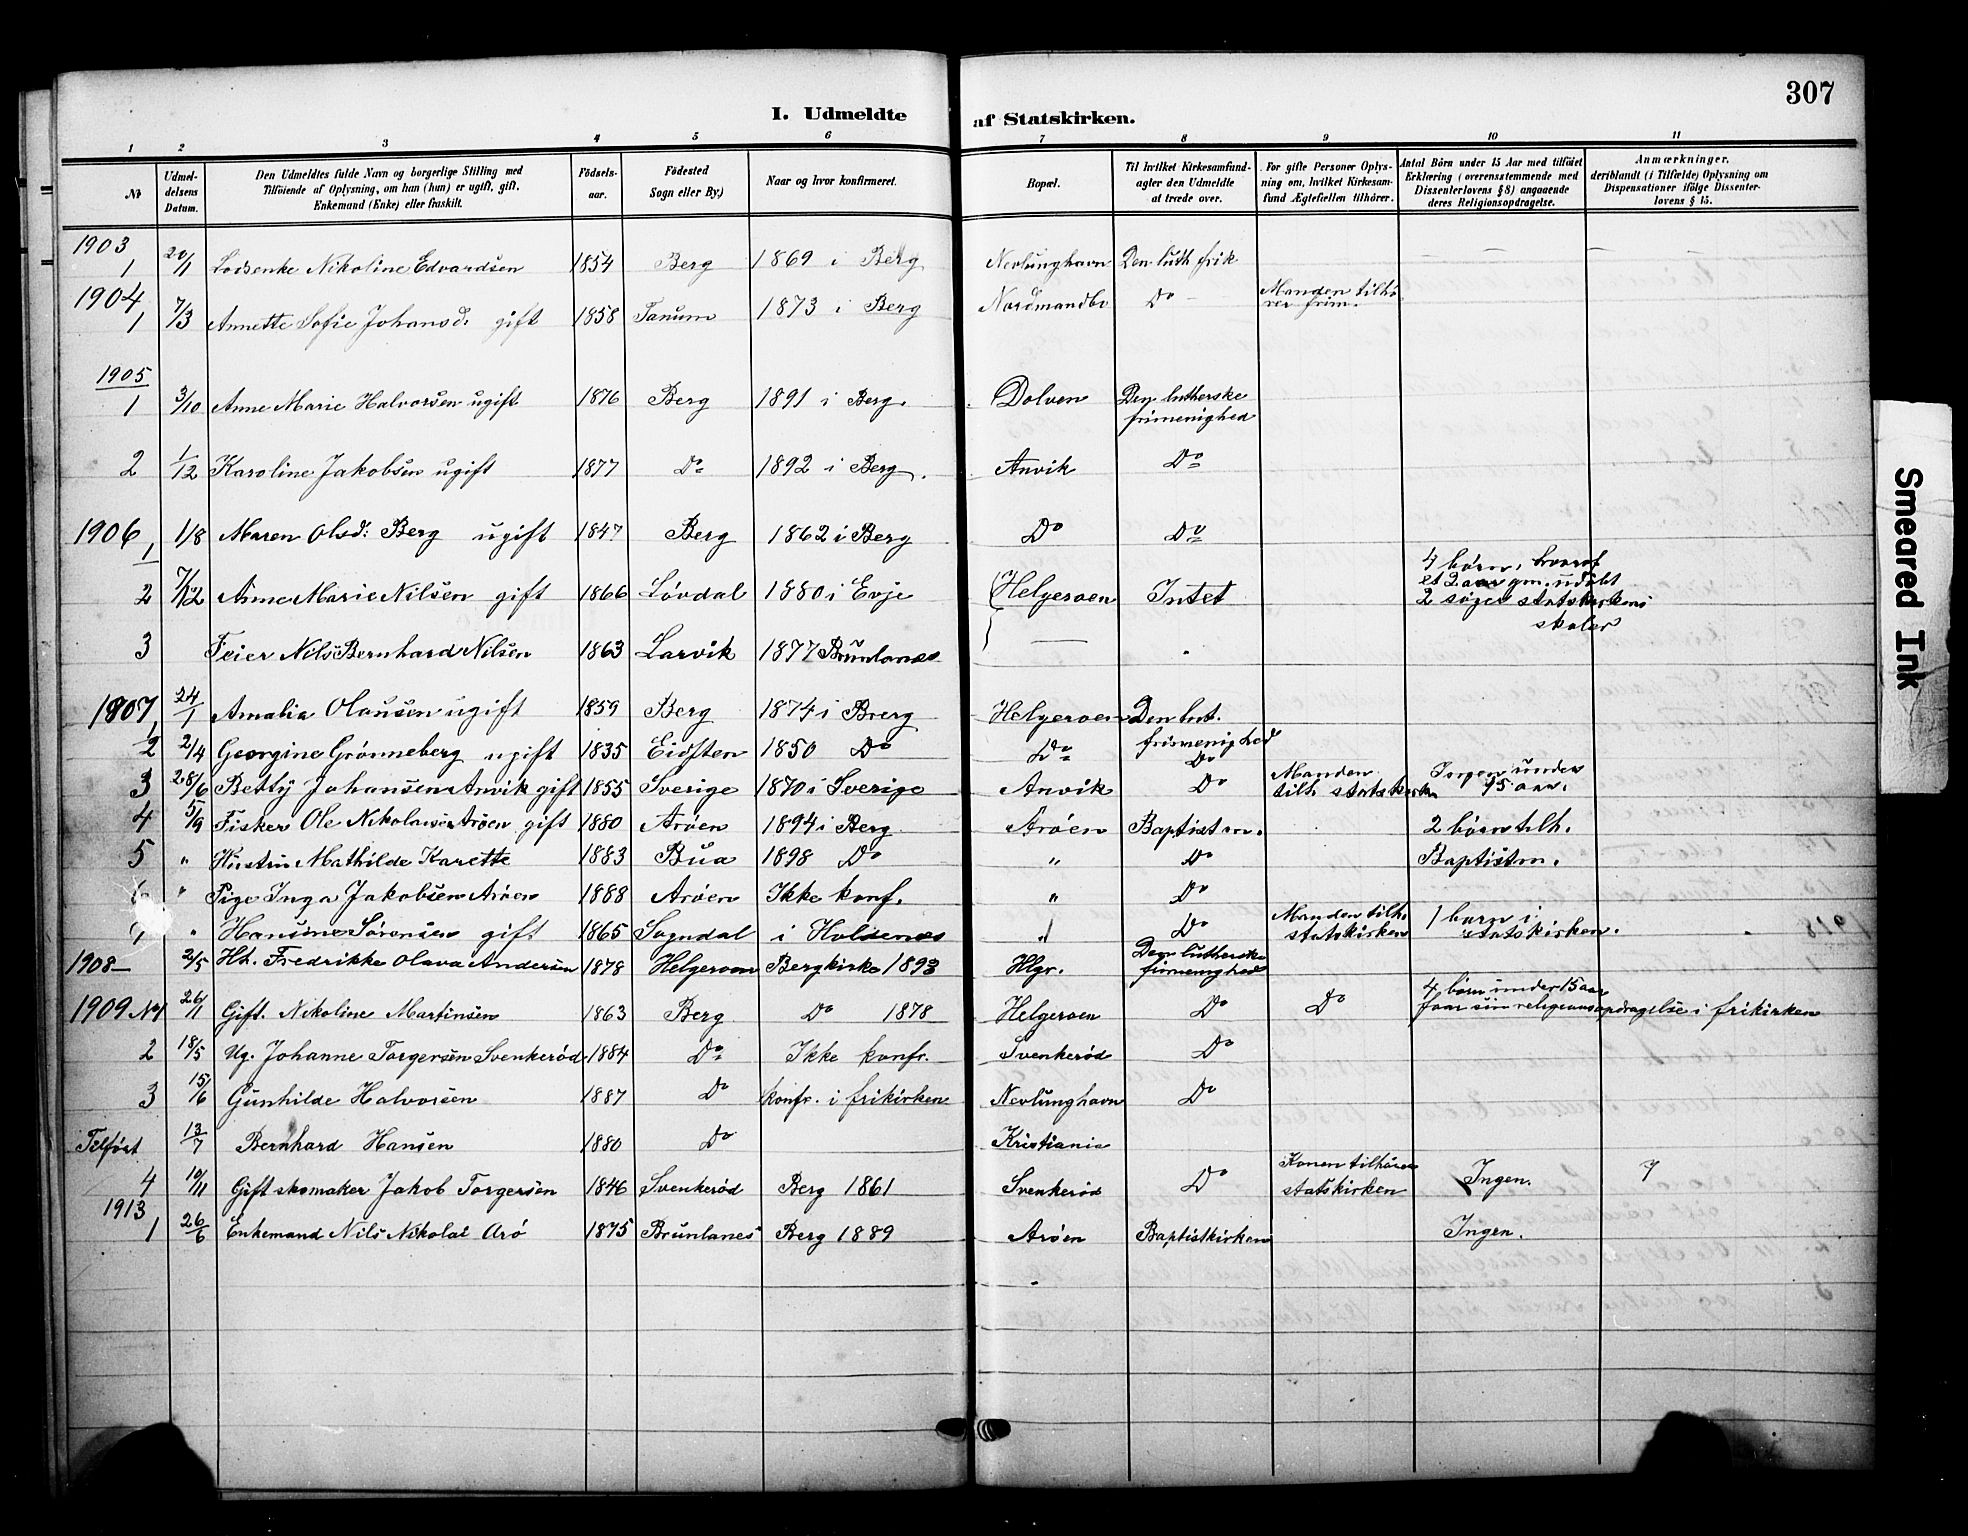 307
I. Udmeldte af Statskirken.
1 2 3 4 5 6 7 8 9 10 11
No
Udmel-
delsens
Datum.
Den Udmeldtes fulde Navn og borgerlige Stilling med
Tilføiende af Oplysning, om han (hun) er ugift, gift,
Enkemand (Enke) eller fraskilt.
Fødsels-
aar.
Fødested
Sogn eller By.)
Naar og hvor konfirmeret.
Bopæl.
Til hvilket Kirkesamfund-
agter den Udmeldte
at træde over.
For gifte Personer Oplys-
ning om, hvilket Kirkesam-
fund Ægtefællen tilhører.
Antal Børn under 15 Aar med tilføiet
Erklæring (overensstemmende med
Dissenterlovens § 8) angaaende
deres Religionsopdragelse.
Anmærkninger,
deriblandt (i Tilfælde) Oplysning om
Dispensationer ifølge Dissenter-
lovens § 15.
1903
1 20/1 Lodsenke Nikoline Edvardsen 1854 Berg 1869 i Berg Nevlunghavn Den luth frik — — —
1904
1 7/3 Annette Sofie Johansd. gift 1858 Tanum 1873 i Berg Nordmandb. Do — Manden tilhø
rer frim.
1905
1 3/10 Anne Marie Halvorsen ugift 1876 Berg 1891 i Berg. Dolven Den lutherske
frimenighed
2 1/12 Karoline Jakobsen ugift 1877 Do 1892 i Berg. Anvik Do
1906
1 1/8 Maren Olsd: Berg ugift 1847 Berg 1862 i Berg Do Do
2 7/12 Anne Marie Nilsen gift 1866 Løvdal 1880 i Evje Helgeroen Intet 4 børn, hvoraf
et 2 aar gm. udøbt
2 søger statskirkens
skoler
3 Feier Nils Bernhard Nilsen 1863 Larvik 1877 Brunlanes —
1907
1 24/1 Amalia Olausen ugift 1859 Berg 1874 i Brerg Helgeroen Den lut.
frimenighed
2 2/4 Georgine Grønneberg ugift 1835 Eidsten 1850 Do Do Do
3 28/6 Betty Johansen Anvik gift 1855 Sverige 1870 i Sverige Anvik Do Manden
tilh. statskirken Ingen under
15 aar.
4 5/9 Fisker Ole Nikolaisen Arøen gift 1880 Arøen 1894 i Berg Arøen Baptist m. 2 børn tilh.
5 " Hustru Mathilde Karette 1883 Bua 1898 Do " Do Baptistm.
6 " Pige Inga Jakobsen Arøen 1888 Arøen Ikke konf. " Do
7 " Hansine Sørensen gift 1865 Sogndal i Holdenæs " Do Manden tilh.
statskirken 1 barn i
statskirken.
1908 — 2/5 Ht. Fredrikke Olava Andersen 1878 Helgeroen Bergkirke 1893 Hlgr. Den lutherske
frimenighed
1909 No1 26/1 Gift. Nikoline Martinsen 1863 Berg Do 1878 Helgeroen Do Do 4 børn under 15 aar
faar sin religionsopdragelse i frikirken
2 18/5 Ug. Johanne Torgersen Svenkerød 1884 Do Ikke konfr. Svenkerød Do
3 15/6 Gunhilde Halvorsen 1887 Do konfr. i frikirken Nevlunghavn Do
Tilført 13/7 Bernhard Hansen 1880 Do Kristiania
4 10/11 Gift skomaker Jakob Torgersen 1846 Svenkerød Berg 1861 Svenkerød Do Konen tilhører
statskirken Ingen. 7
1913
1 26/6 Enkemand Nils Nikolai Arø 1875 Brunlanes Berg 1889 Arøen Baptistkirken Ingen.
Smeared Ink